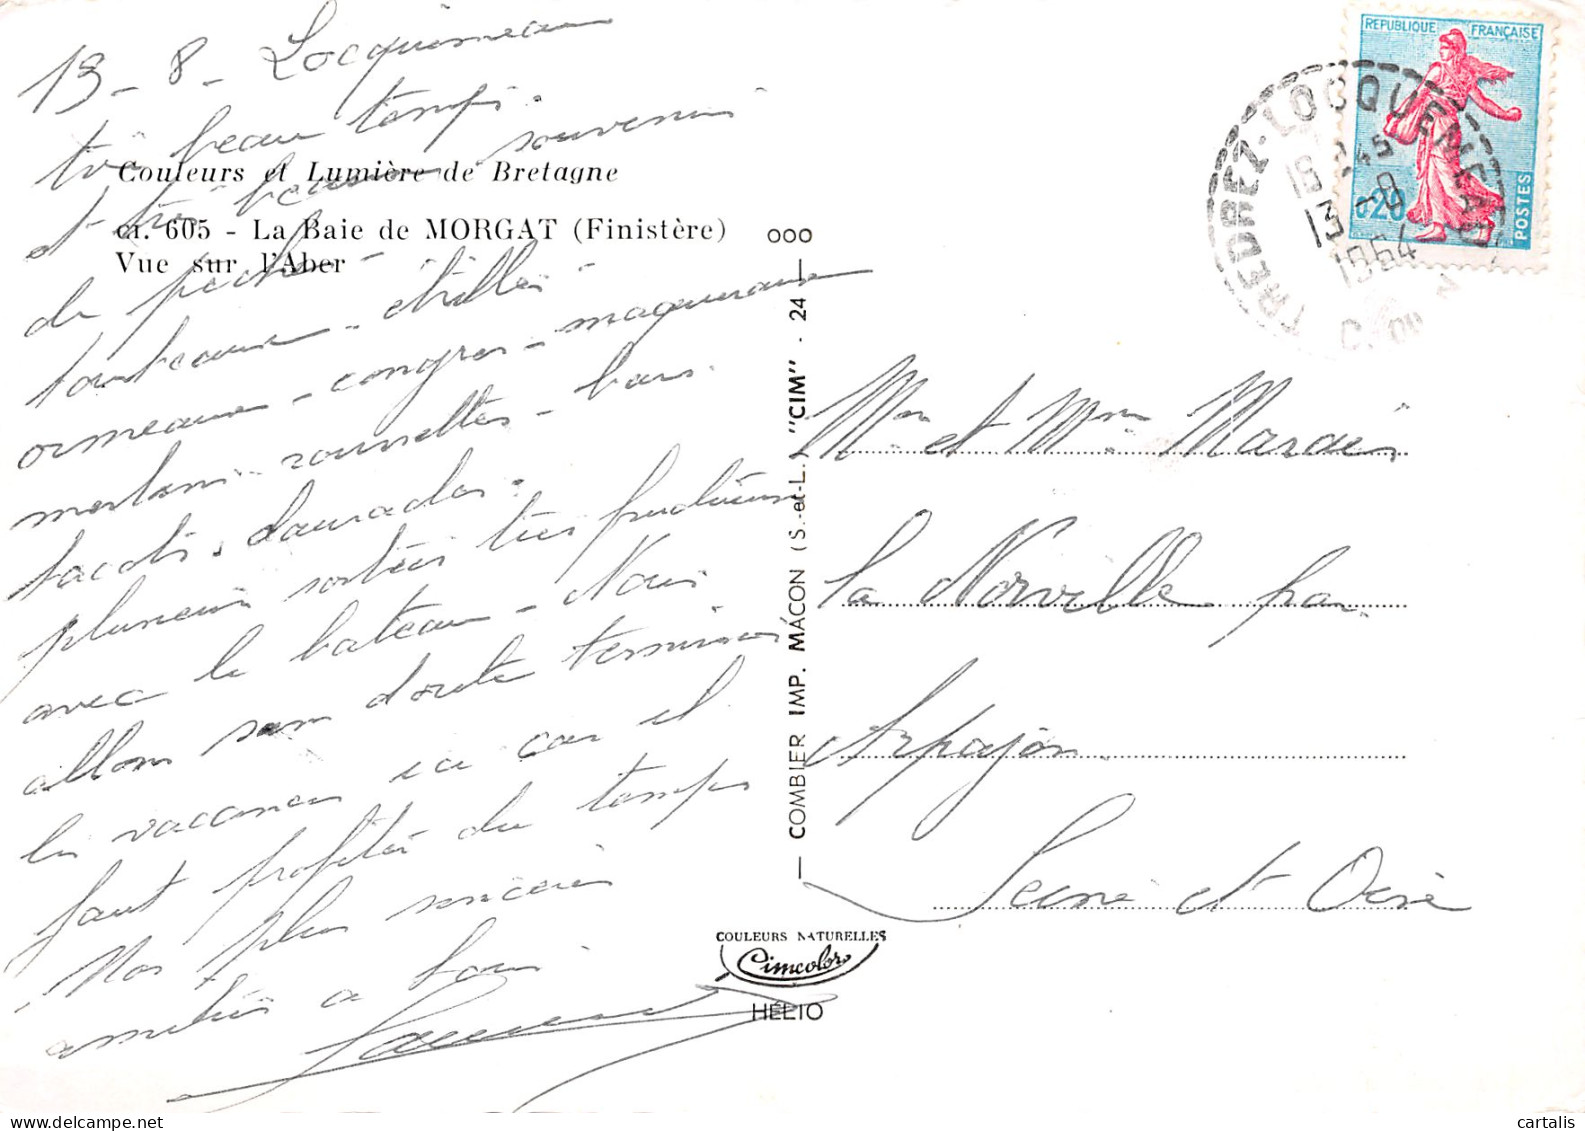 13 - 8 - Locquémeau
très beau temps.
et très beaux souvenirs
de pêche -
tourteaux - étrilles -
ormeaux - congres - maquereaux
merlans - roussettes - bars
tacots, daurades.
plusieurs sorties très fructueuses
avec le bateau - Nous
allons sans doute terminer
les vacances ici car il
faut profiter du temps
Nos plus sincères
amitiés à tous
Couleurs et Lumière de Bretagne
ct. 605 - La Baie de MORGAT (Finistère)
Vue sur l'Aber
COMBIER IMP. MACON (S.-et-L.) "CIM" - 24
COULEURS NATURELLES
Cimcolor
HÉLIO
REPUBLIQUE FRANÇAISE
0,20
POSTES
TREDREZ-LOCQUEMEAU
13 - 8
1964
C. DU N
Mr et Mme Marais
la Norville par
Arpajon.
Seine et Oise
cartalis
www.delcampe.net